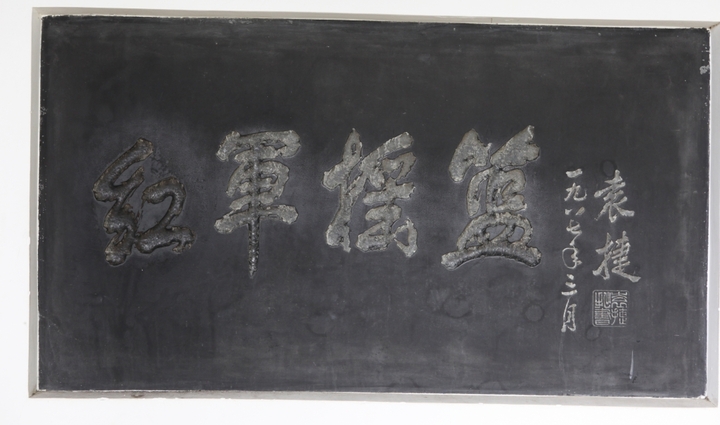 紅軍摇籃
袁捷
一九八七年三月